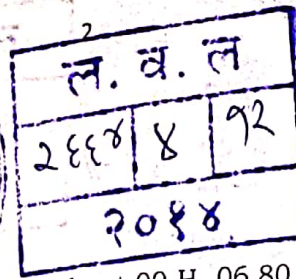 2
ल. व. ल
२६६४ ४ १२
२०१४
00 H. 06.80